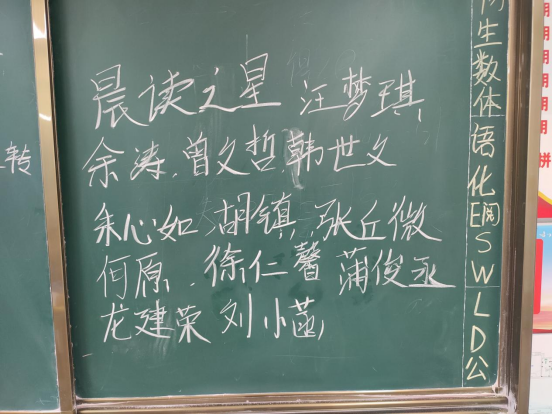 晨读之星 汪梦琪
余涛.曾文哲.韩世文
朱心如.胡镇.张丘微
何原.徐仁馨 蒲俊丞
龙建荣 刘小菡
转
生数体语化E阅SWLD公